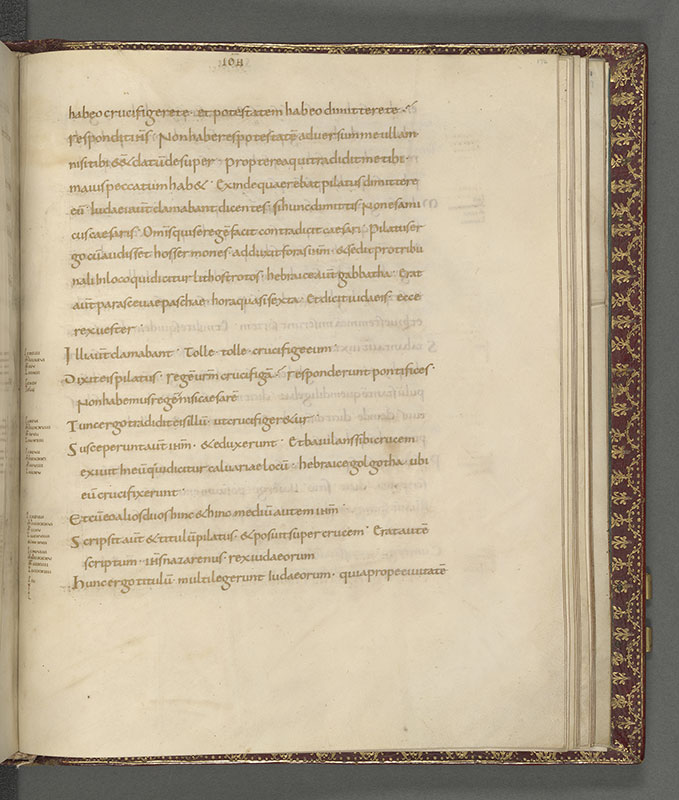 IOH
habeo crucifigere te · et potestatem habeo dimittere te ·
respondit ih̄s · Non haberes potestatē adversum me ullam ·
nisi tibi eēt datū desuper · Propterea qui tradidit me tibi ·
maius peccatum hab& · Exinde quaerebat pilatus dimittere
eū · Iudaei aut̄ clamabant dicentes · si hunc dimittis Non es ami
cus caesaris · Om̄is qui se regē facit contradicit caesari · Pilatus er
go cū audisset hos sermones · adduxit foras ih̄m · & sedit pro tribu
nali In loco qui dicitur lithostrotos · hebraice aut̄ gabbatha · Erat
aut̄ parasceuae paschae · hora quasi sexta · Et dicit iudaeis · ecce
rex vester ·
Illi aut̄ clamabant · Tolle · tolle · crucifige eum ·
Dixit eis pilatus · regē ur̄m crucifigā · responderunt pontifices ·
Non habemus regē nisi caesarē
Tunc ergo tradidit eis illū · ut crucifiger&ur ·
Susceperunt aut̄ ih̄m · & eduxerunt · Et baiulans sibi crucem
exivit In eū qui dicitur calvariae locū · hebraice golgotha · ubi
eū crucifixerunt ·
Et cū eo alios duos hinc & hinc mediū autem ih̄m ·
Scripsit aut̄ & titulū pilatus · & posuit super crucem · Erat autē
scriptum · ih̄s nazarenus · rex iudaeorum
Hunc ergo titulū multi legerunt Iudaeorum · quia prope civitatē